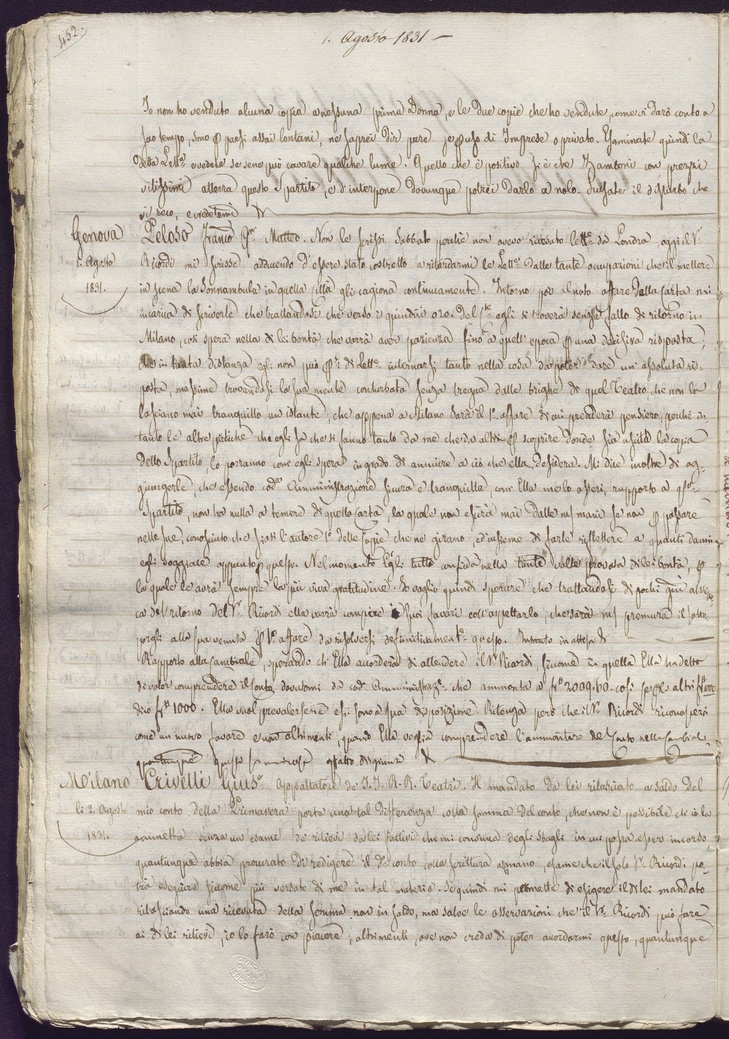 452.
1. Agosto 1831 —
Io non ho venduto alcuna copia a nessuna prima Donna, e le due copie che ho vendute, come vi darò conto a
suo tempo, sono p paesi assai lontani, ne saprei dir pure se p uso di Imprese o privato. Esaminate quindi la
detta Lettª e vedete se se ne può cavare qualche lume. Quello che è positivo si è che Zamboni con prezzi
vilissimi atterra questo Spartito, e d'interzone dovunque potrei darlo a nolo. Scusate il disturbo che
vi reco, e credetemi
Genova
1. Agosto
1831.
Peloso Franco qm Matteo. Non le scrissi Sabbato perchè non avevo ricevuto lettª da Londra, oggi il Sr
Ricordi mi scrisse, adducendo d'essere stato costretto a ritardarmi le Lettª dalle tante occupazioni che il mettere
in scena la Sonnambula in quella città gli cagiona continuamente. Intorno poi al noto affare della carta mi
incarica di scriverle che trattandosi che verso i quindici o 20. del egli si troverà senza fallo di ritorno in
Milano, così spera nella di lei bontà che vorrà aver pazienza fino a quell'epoca p una decisiva risposta;
che in tanta distanza egli non può p di Lettª internarsi tanto nella cosa da poter dare un'assoluta ris-
posta, massime trovandosi la sua mente conturbata senza tregua dalle brighe di quel Teatro, che non lo
lasciano mai tranquillo un istante, che appena a Milano sarà il 1º affare di cui prenderà pensiero, perchè in
tanto le altre pratiche che egli sa che si fanno tanto da me che da altri p scoprire donde sia uscita la copia
dello Spartito, lo porranno com'egli spera in grado di annuire a ciò che ella desidera. Mi dice inoltre di ag-
giungerle, che essendo codª Amministrazione sicura e tranquilla, com'Ella me lo asserì, rapporto a qto
Spartito, non ha nulla a temere di quella carta, la quale non escirà mai dalle sue mani se non p passare
nelle sue, conosciuto che siasi l'autore delle Copie che ne girano, ed insieme di farle riflettere a quanti danni
egli soggiace appunto p questo. Nel momento Egli tutto confida nella tante volte provata di lei bontà, p
la quale le avrà sempre la più viva gratitudine. Io voglio quindi sperare che trattandosi di pochi giri al
a del ritorno del Sr Ricordi ella vorrà compire i suoi favori coll'aspettarlo, che sarà mi premura il sotto-
porgli alla sua venuta p 1º affare da risolversi definitivamente questo. Intanto in attesa
Rapporto alla Cambiale, sperando ch'Ella accorderà di attendere il Sr Ricordi, siccome in quella Ella ha detto
di voler comprendere il conto dovutomi da codª Amministraz. che ammonta a fr. 2009.60. così se gli altri
dico fr. 1000. Ella vuol prevalersene essi sono a sua disposizione. Ritenga però che il Sr Ricordi riconoscerà
come un nuovo favore e non altrimenti, quand'Ella voglia comprendere l'ammontare del Conto nella Cambiale
quantunque questo sia affatto disgiunto
Milano
li 2. Agosto
1831.
Crivelli Gius. Appaltatore de' I. I. R. R. Teatri. Il mandato da lei rilasciato a saldo del
mio conto della Primavera porta una tal differenza colla somma del conto, che non è possibile ch'io lo
ammetta senza un esame de' rilievi da lei fattivi che mi convinca degli sbagli in cui possa esser incorso
quantunque abbia procurato di redigere il do conto colla scrittura a mano, esame che il solo Sr Ricordi po-
trà eseguire siccome più versato di me in tal materia. Se quindi mi permette di esigere il di lei mandato
rilasciando una ricevuta della somma non in saldo, ma salve le osservazioni che il Sr Ricordi può fare
ai di lei rilievi, io lo farò con piacere, altrimenti, ove non creda di poter accordarmi questo, quantunque